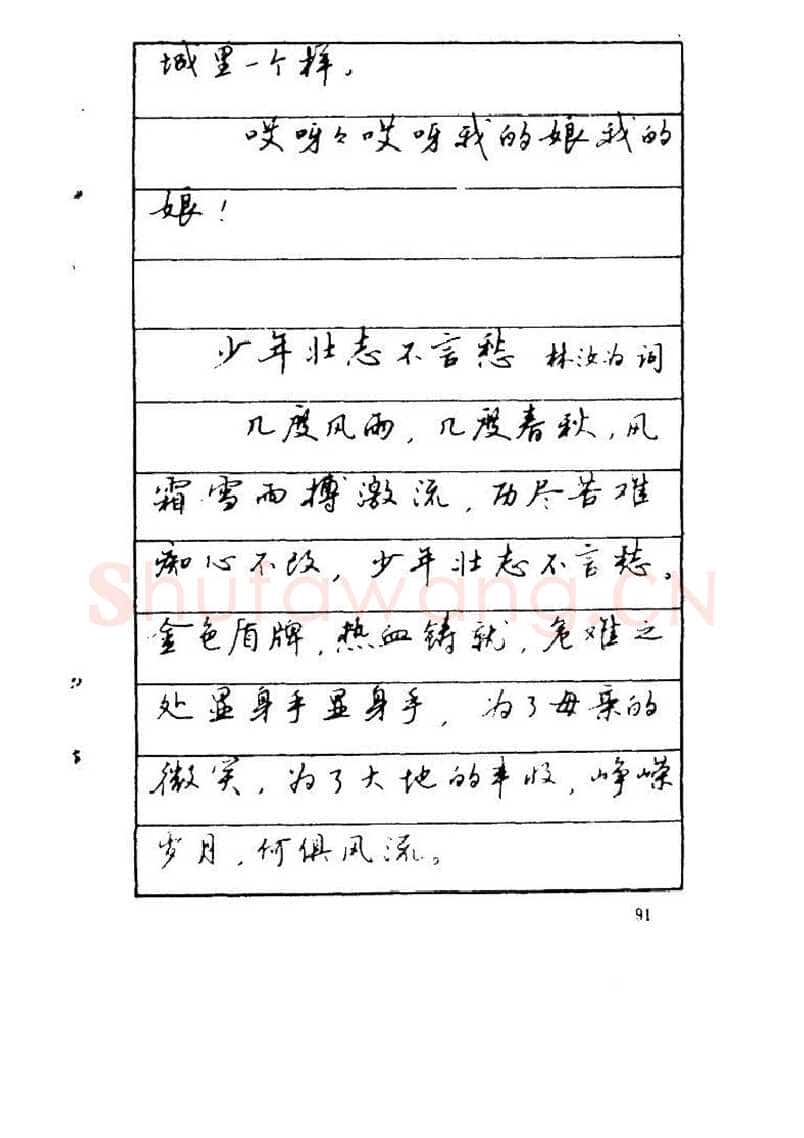 城里一个样。
哎呀々哎呀我的娘我的
娘！
少年壮志不言愁 林汝为词
几度风雨，几度春秋，风
霜雪雨搏激流，历尽苦难
痴心不改，少年壮志不言愁。
金色盾牌，热血铸就，危难之
处显身手显身手，为了母亲的
微笑，为了大地的丰收，峥嵘
岁月，何俱风流。
91
Shufawang.CN